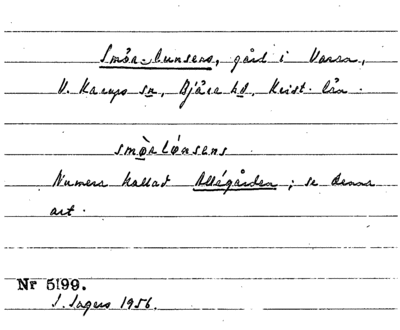 Smör-Lunsens, gård i Varan,
V. Karups sn, Bjäre hd, Krist. län.
smö̀rlónsens
Numera kallad Allégården; se denna
art.
Nr 5199.
I. Ingers 1956.